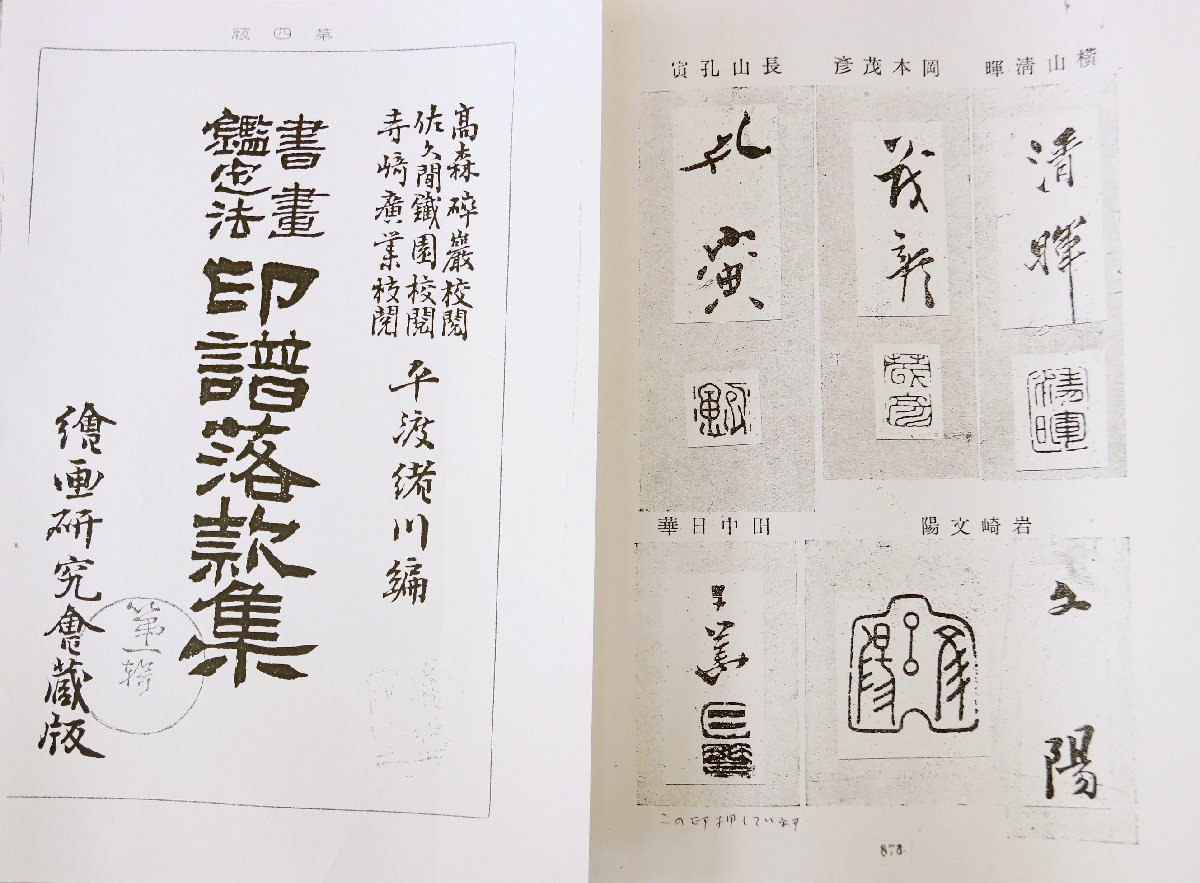 第四版
高森碎巖校閲
佐久間鐵園校閲
寺崎廣業校閲
平渡緒川編
書畫
鑑定法
印譜落款集
第一輯
繪画研究會蔵版
橫山清暉
清暉
清暉
岡本茂彥
茂彥
茂彥
長山孔寅
孔寅
岩崎文陽
文陽
文陽
田中日華
日華
日華
この印押しています
873